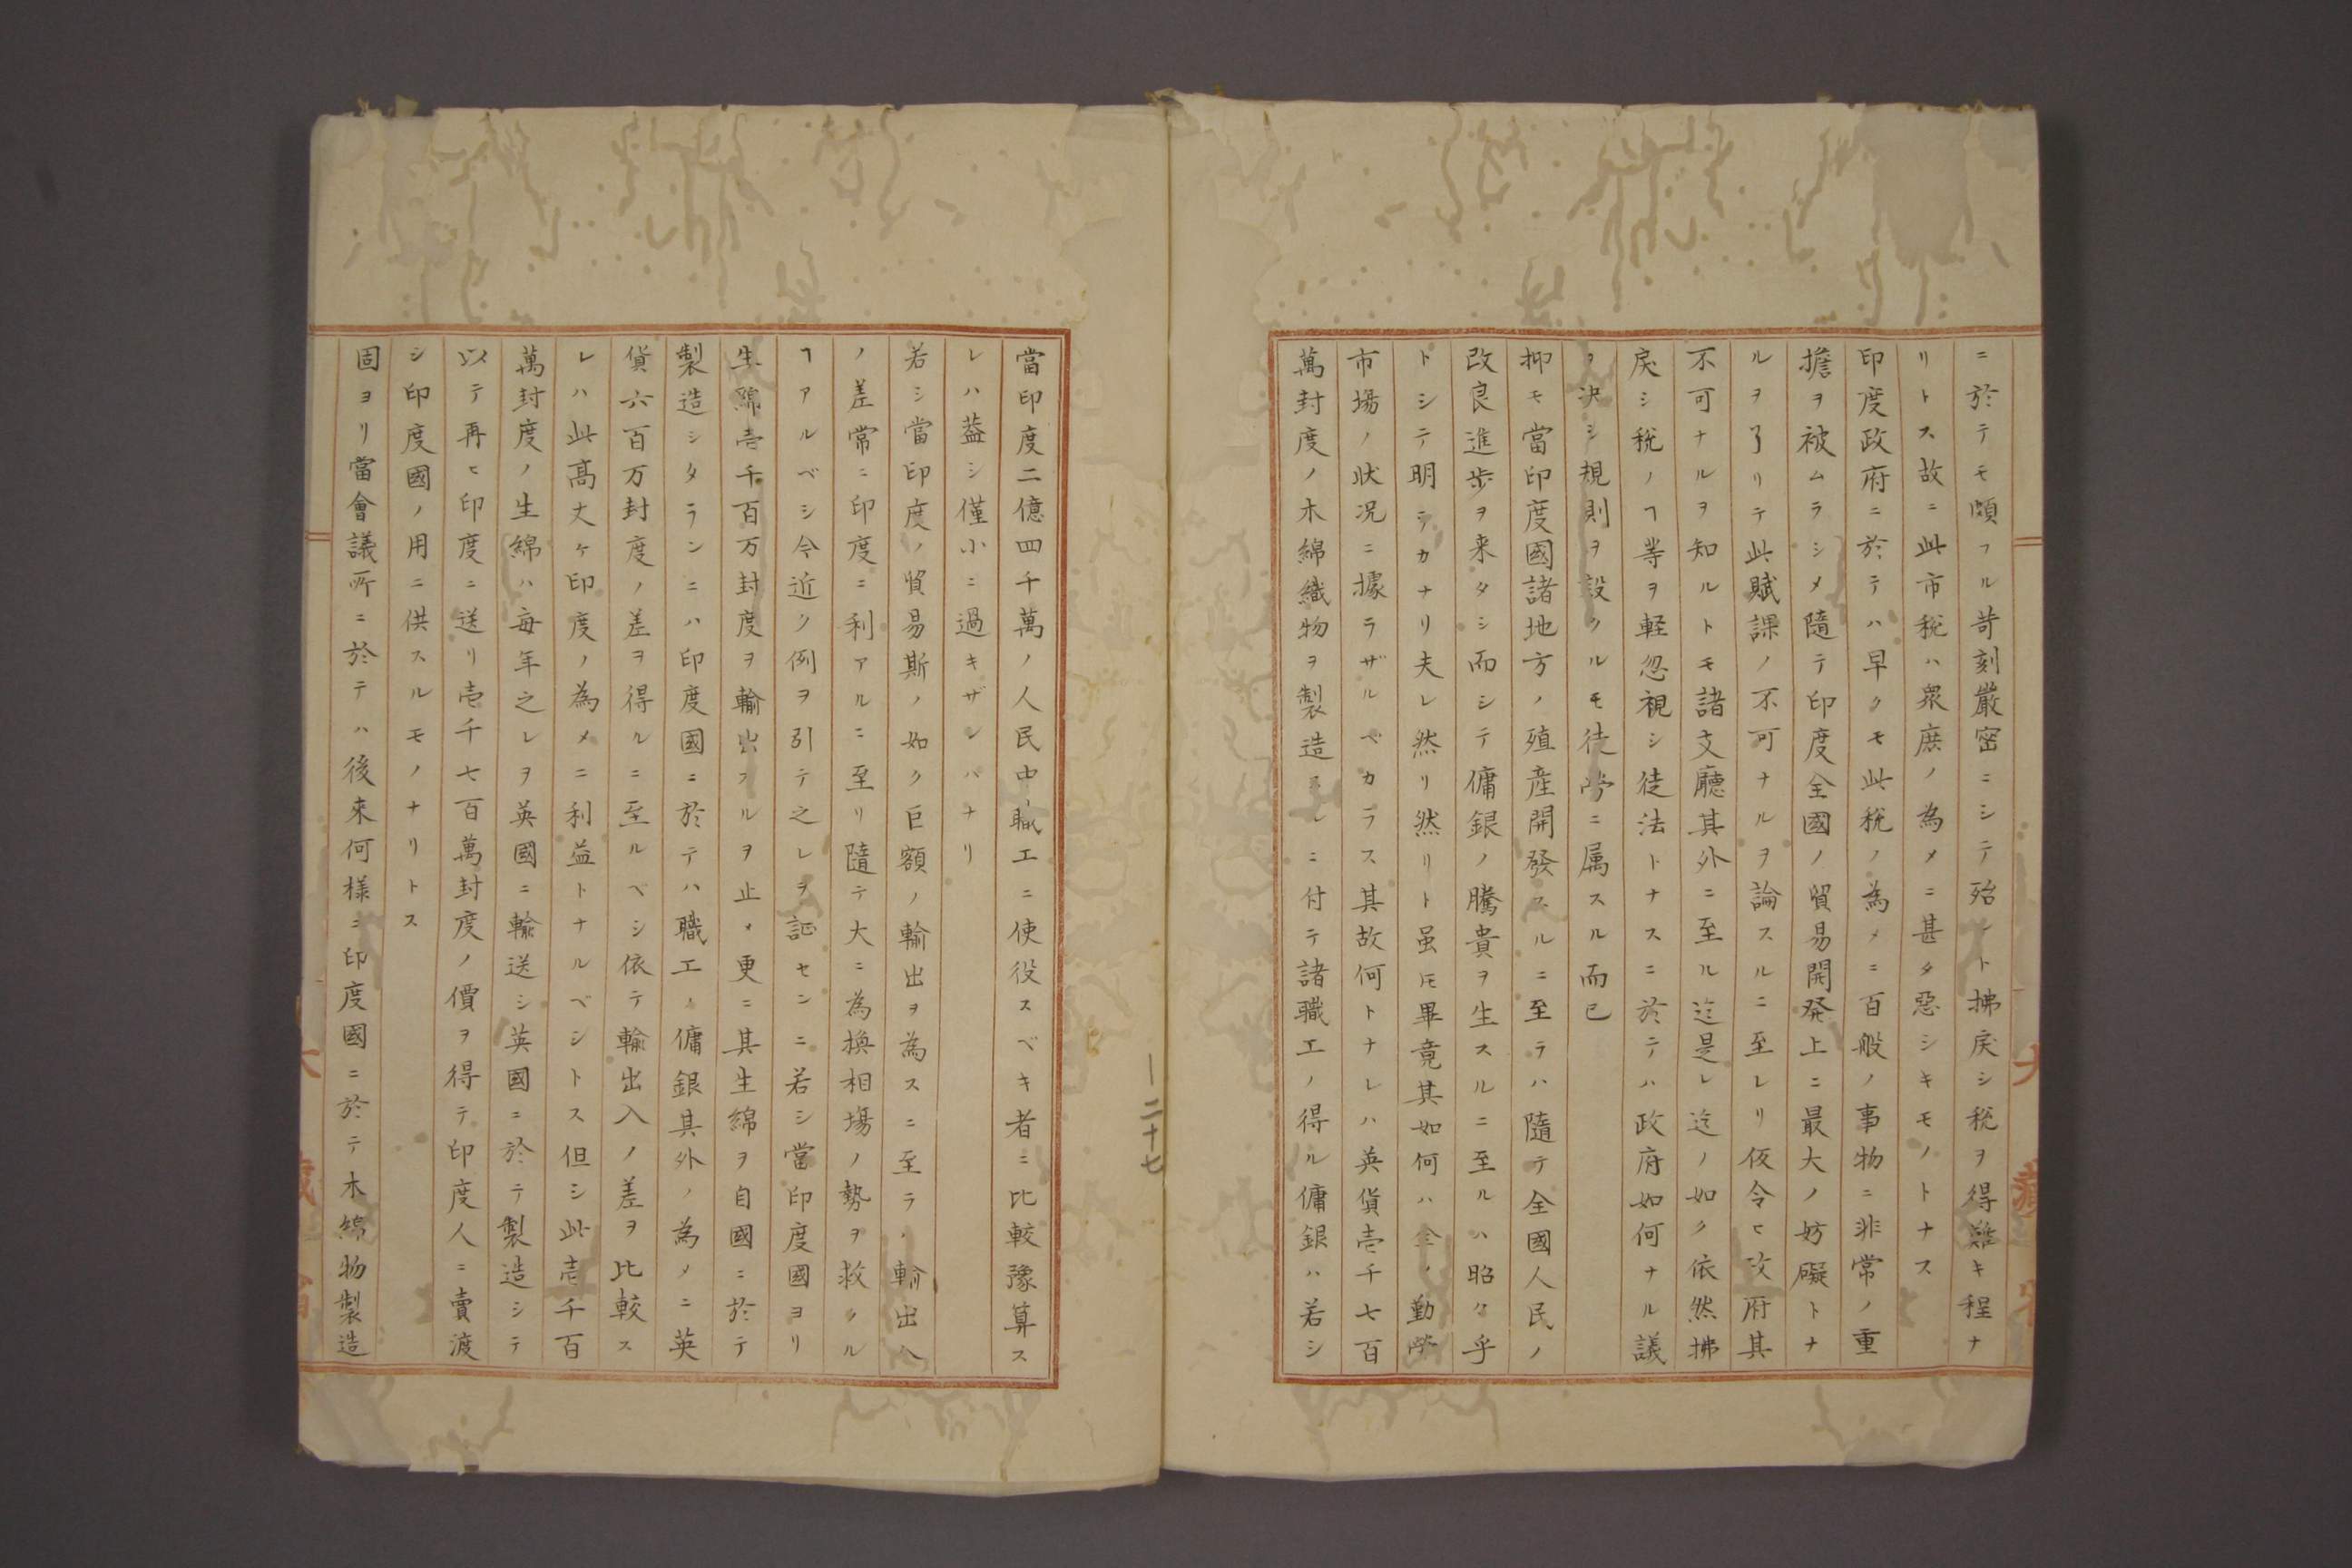 ニ於テモ頗フル苛刻嚴密ニシテ殆ント拂戻シ税ヲ得難キ程ナ
リトス故ニ此市税ハ衆庶ノ為メニ甚タ惡シキモノトナス
印度政府ニ於テハ早クモ此税ノ為メニ百般ノ事物ニ非常ノ重
擔ヲ被ムラシメ隨テ印度全國ノ貿易開発上ニ最大ノ妨礙トナ
ルヲ了リテ此賦課ノ不可ナルヲ論スルニ至レリ仮令ヒ政府其
不可ナルヲ知ルトモ諸支廳其外ニ至ル迄是レ迄ノ如ク依然拂
戻シ税ノヿ等ヲ軽忽視シ徒法トナスニ於テハ政府如何ナル議
ヲ決シ規則ヲ設クルモ徒労ニ属スル而已
抑モ當印度國諸地方ノ殖産開發スルニ至ラハ隨テ全國人民ノ
改良進歩ヲ来タシ而シテ傭銀ノ騰貴ヲ生スルニ至ルハ昭々乎
トシテ明ラカナリ夫レ然リ然リト虽𪜈畢竟其如何ハ全ク勤労
市場ノ状况ニ據ラザルベカラス其故何トナレハ英貨壱千七百
萬封度ノ木綿織物ヲ製造スルニ付テ諸職工ノ得ル傭銀ハ若シ
二十七
當印度二億四千萬ノ人民中職工ニ使役スベキ者ニ比較豫算ス
レハ蓋シ僅小ニ過キザレバナリ
若シ當印度ノ貿易斯ノ如ク巨額ノ輸出ヲ為スニ至ラハ輸出入
ノ差常ニ印度ニ利アルニ至リ隨テ大ニ為換相場ノ勢ヲ救クル
ヿアルベシ今近ク例ヲ引テ之レヲ証センニ若シ當印度國ヨリ
生綿壱千百万封度ヲ輸出スルヲ止メ更ニ其生綿ヲ自國ニ於テ
製造シタランニハ印度國ニ於テハ職工ノ傭銀其外ノ為メニ英
貨六百万封度ノ差ヲ得ルニ至ルベシ依テ輸出入ノ差ヲ比較ス
レハ此髙丈ケ印度ノ為メニ利益トナルベシトス但シ此壱千百
萬封度ノ生綿ハ毎年之レヲ英國ニ輸送シ英國ニ於テ製造シテ
以テ再ヒ印度ニ送リ壱千七百萬封度ノ價ヲ得テ印度人ニ賣渡
シ印度國ノ用ニ供スルモノナリトス
固ヨリ當會議所ニ於テハ後来何様ニ印度國ニ於テ木綿物製造